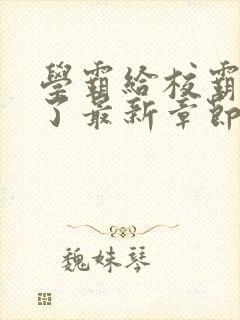 學霸給校霸
了最新章節
魏妹琴